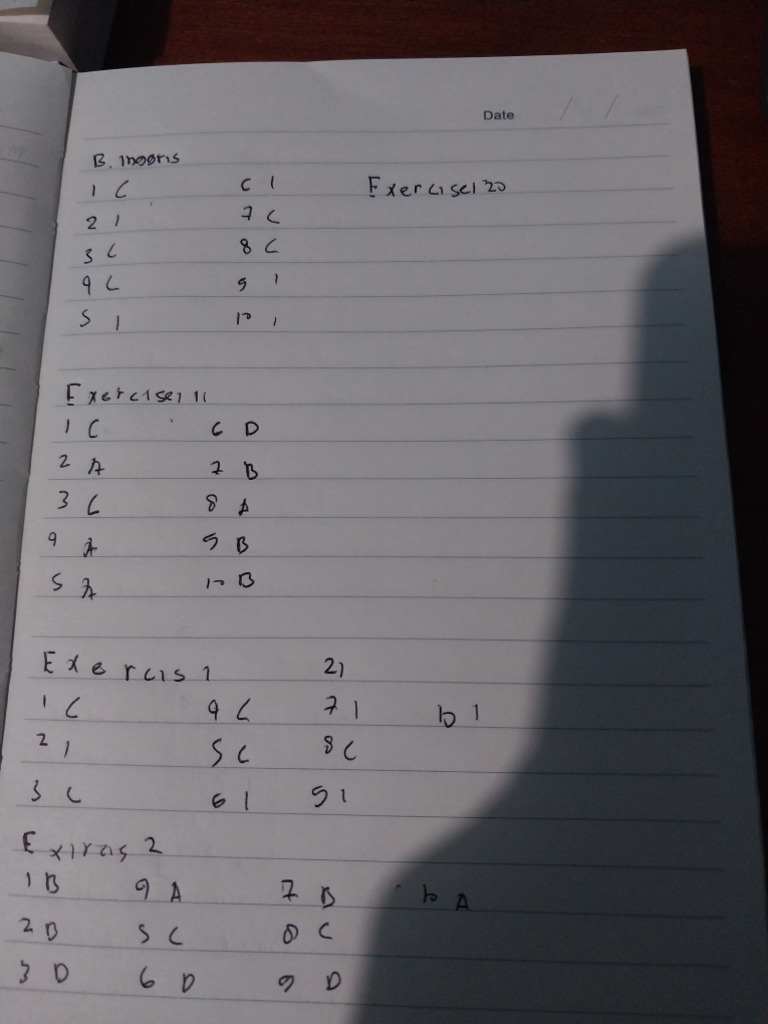 Date / /
B. Inggris
1 C 6 1 Exercise 120
2 1 7 C
3 C 8 C
4 C 9 1
5 1 10 1
Exercise 11
1 C 6 D
2 A 7 B
3 C 8 A
4 A 9 B
5 A 10 B
Exercis 1 21
1 C 4 C 7 1 10 1
2 1 5 C 8 C
3 C 6 1 9 1
Exircis 2
1 B 4 A 7 B 10 A
2 B 5 C 8 C
3 D 6 D 9 D